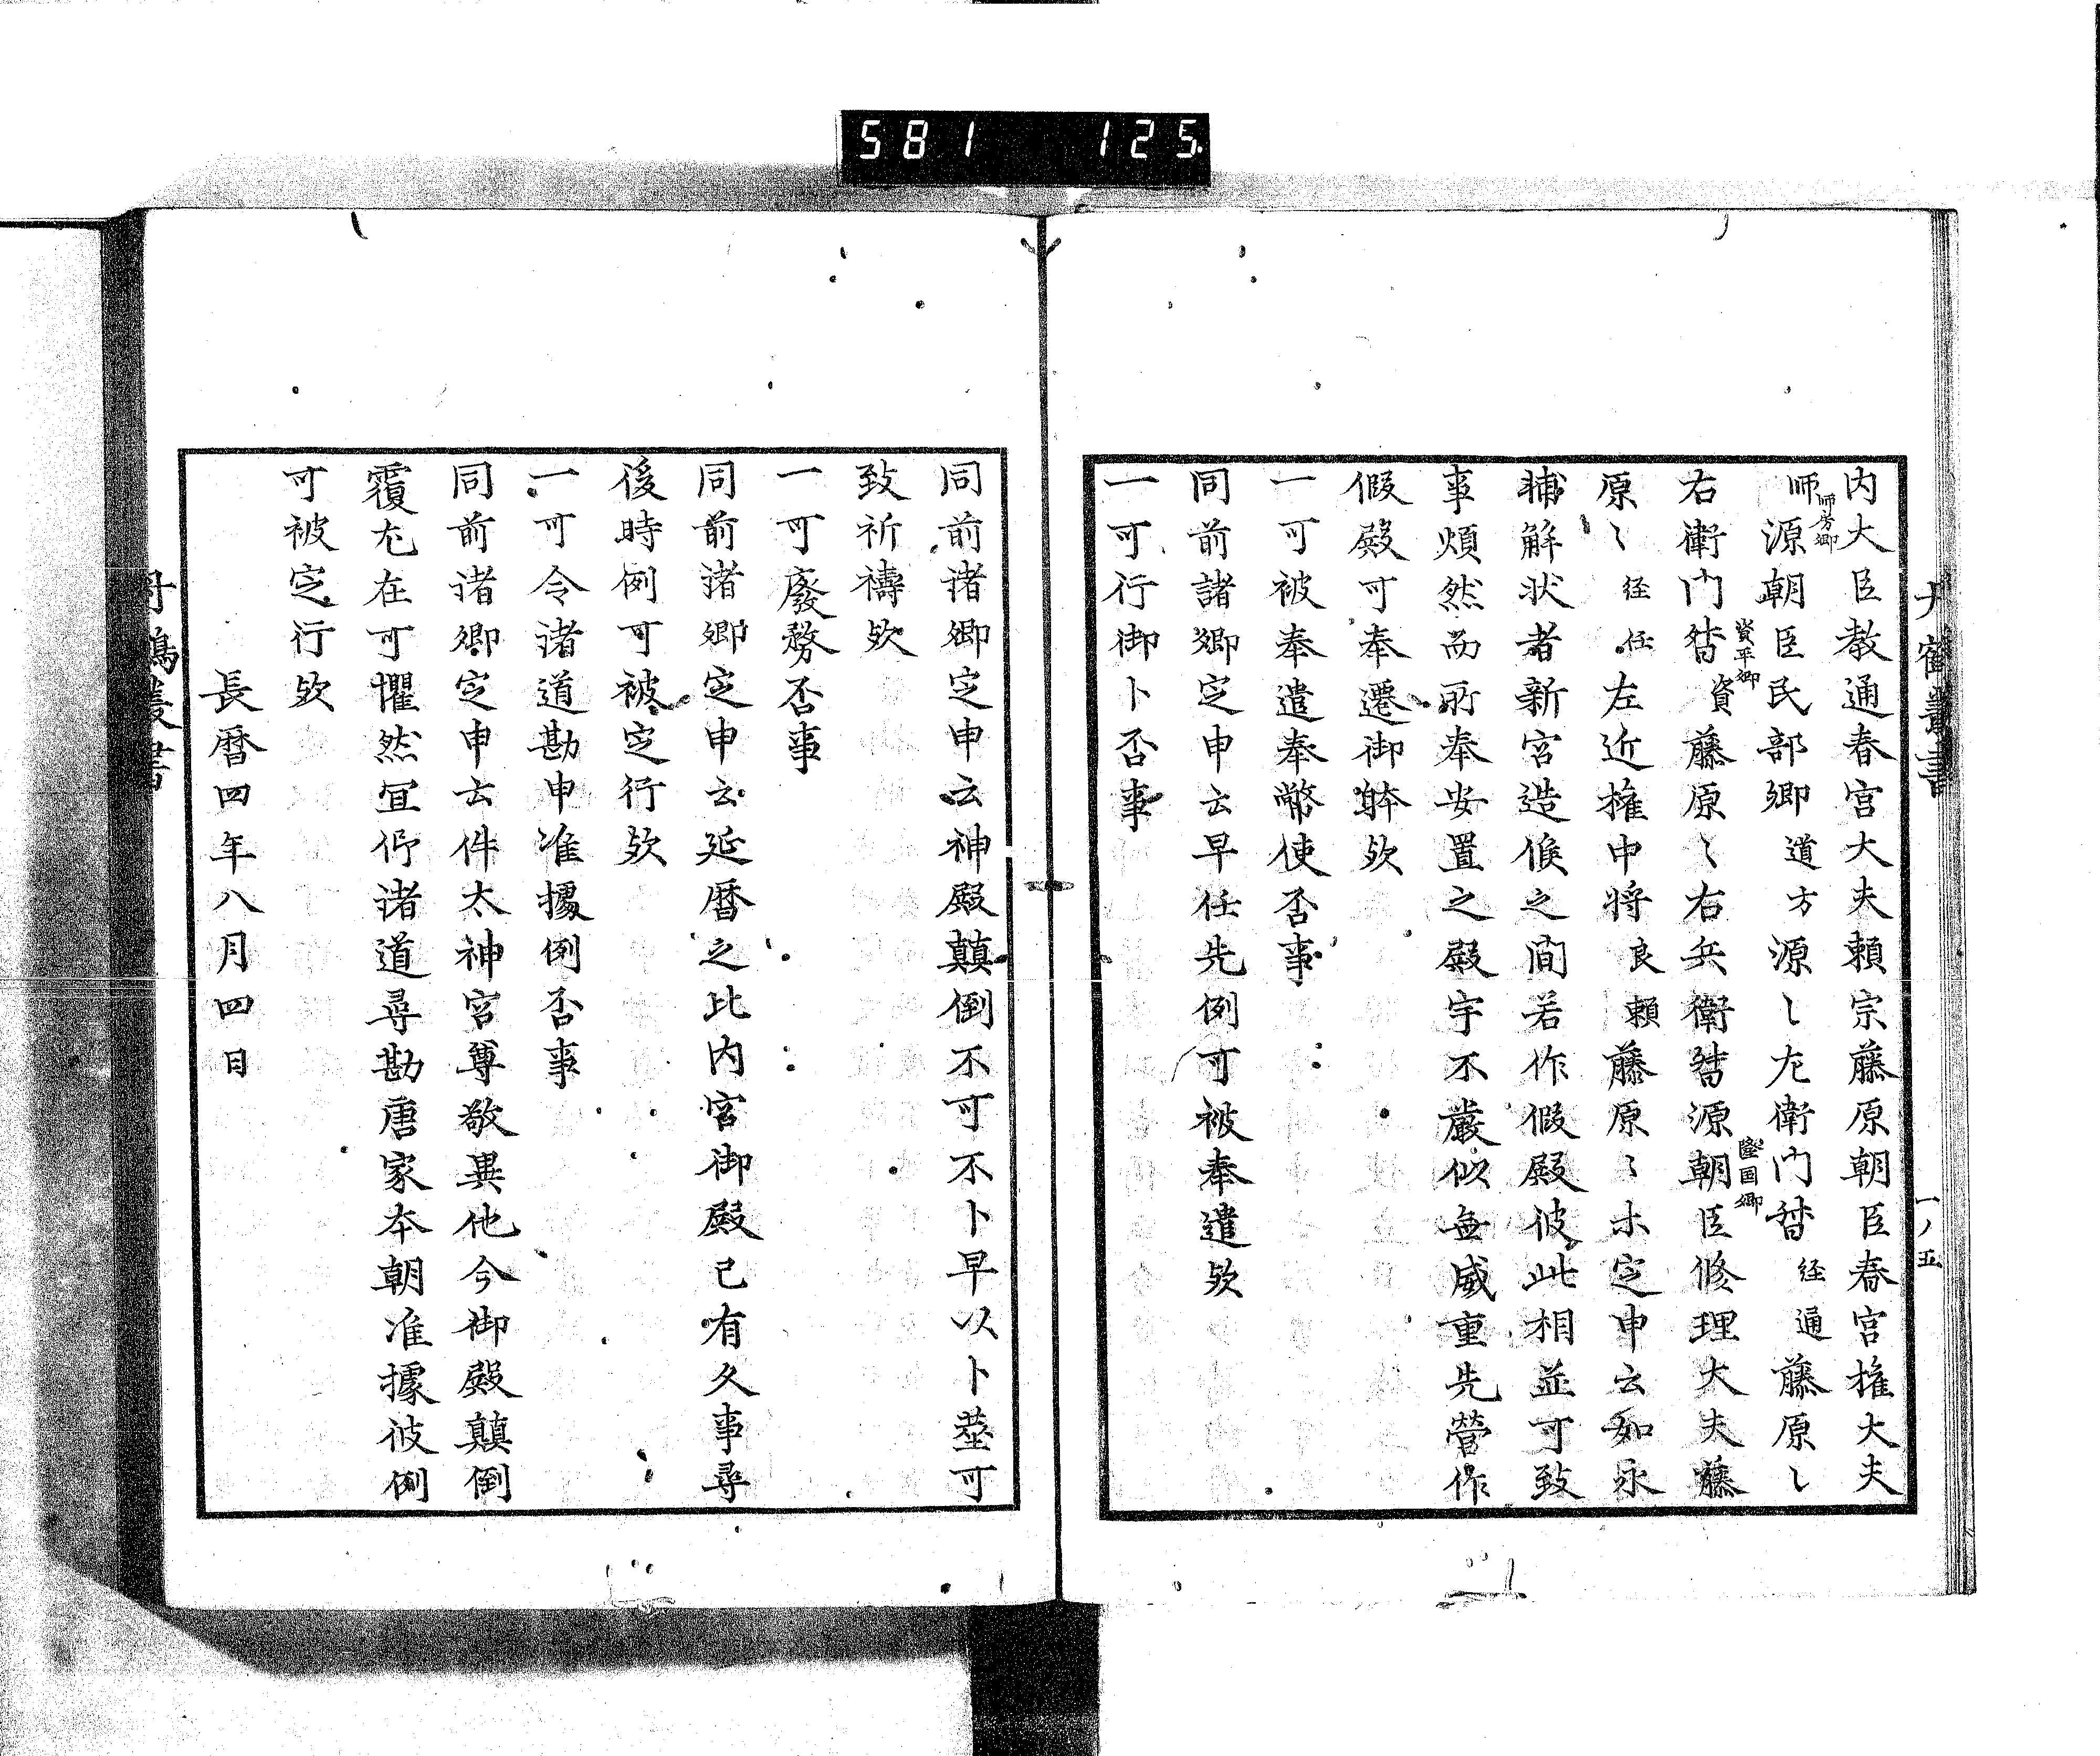 581 125
内大臣教通春宮大夫頼宗藤原朝臣春宮権大夫
師師房卿源朝臣民部卿道方源〻左衛門督経通藤原〻
右衛門督資平卿資藤原〻右兵衛督源朝臣隆国卿修理大夫藤
原〻経任左近権中将良頼藤原〻等定申云如永
輔解状者新宮造候之間若作假殿彼此相並可致
事煩然而所奉安置之殿宇不嚴似無威重先營作
假殿可奉遷御躰欤
一可被奉遣奉幣使否事
同前諸卿定申云早任先例可被奉遣欤
一可行御卜否事
同前諸卿定申云神殿顛倒不可不卜早以卜筮可
致祈禱欤
一可廢務否事
同前諸卿定申云延暦之比内宮御殿已有久事尋
後時例可被定行欤
一可令諸道勘申准據例否事
同前諸卿定申云件太神宮尊敬異他今御殿顛倒
覆尤在可懼然宜仰諸道尋勘唐家本朝准據彼例
可被定行欤
長暦四年八月四日
丹鶴叢書